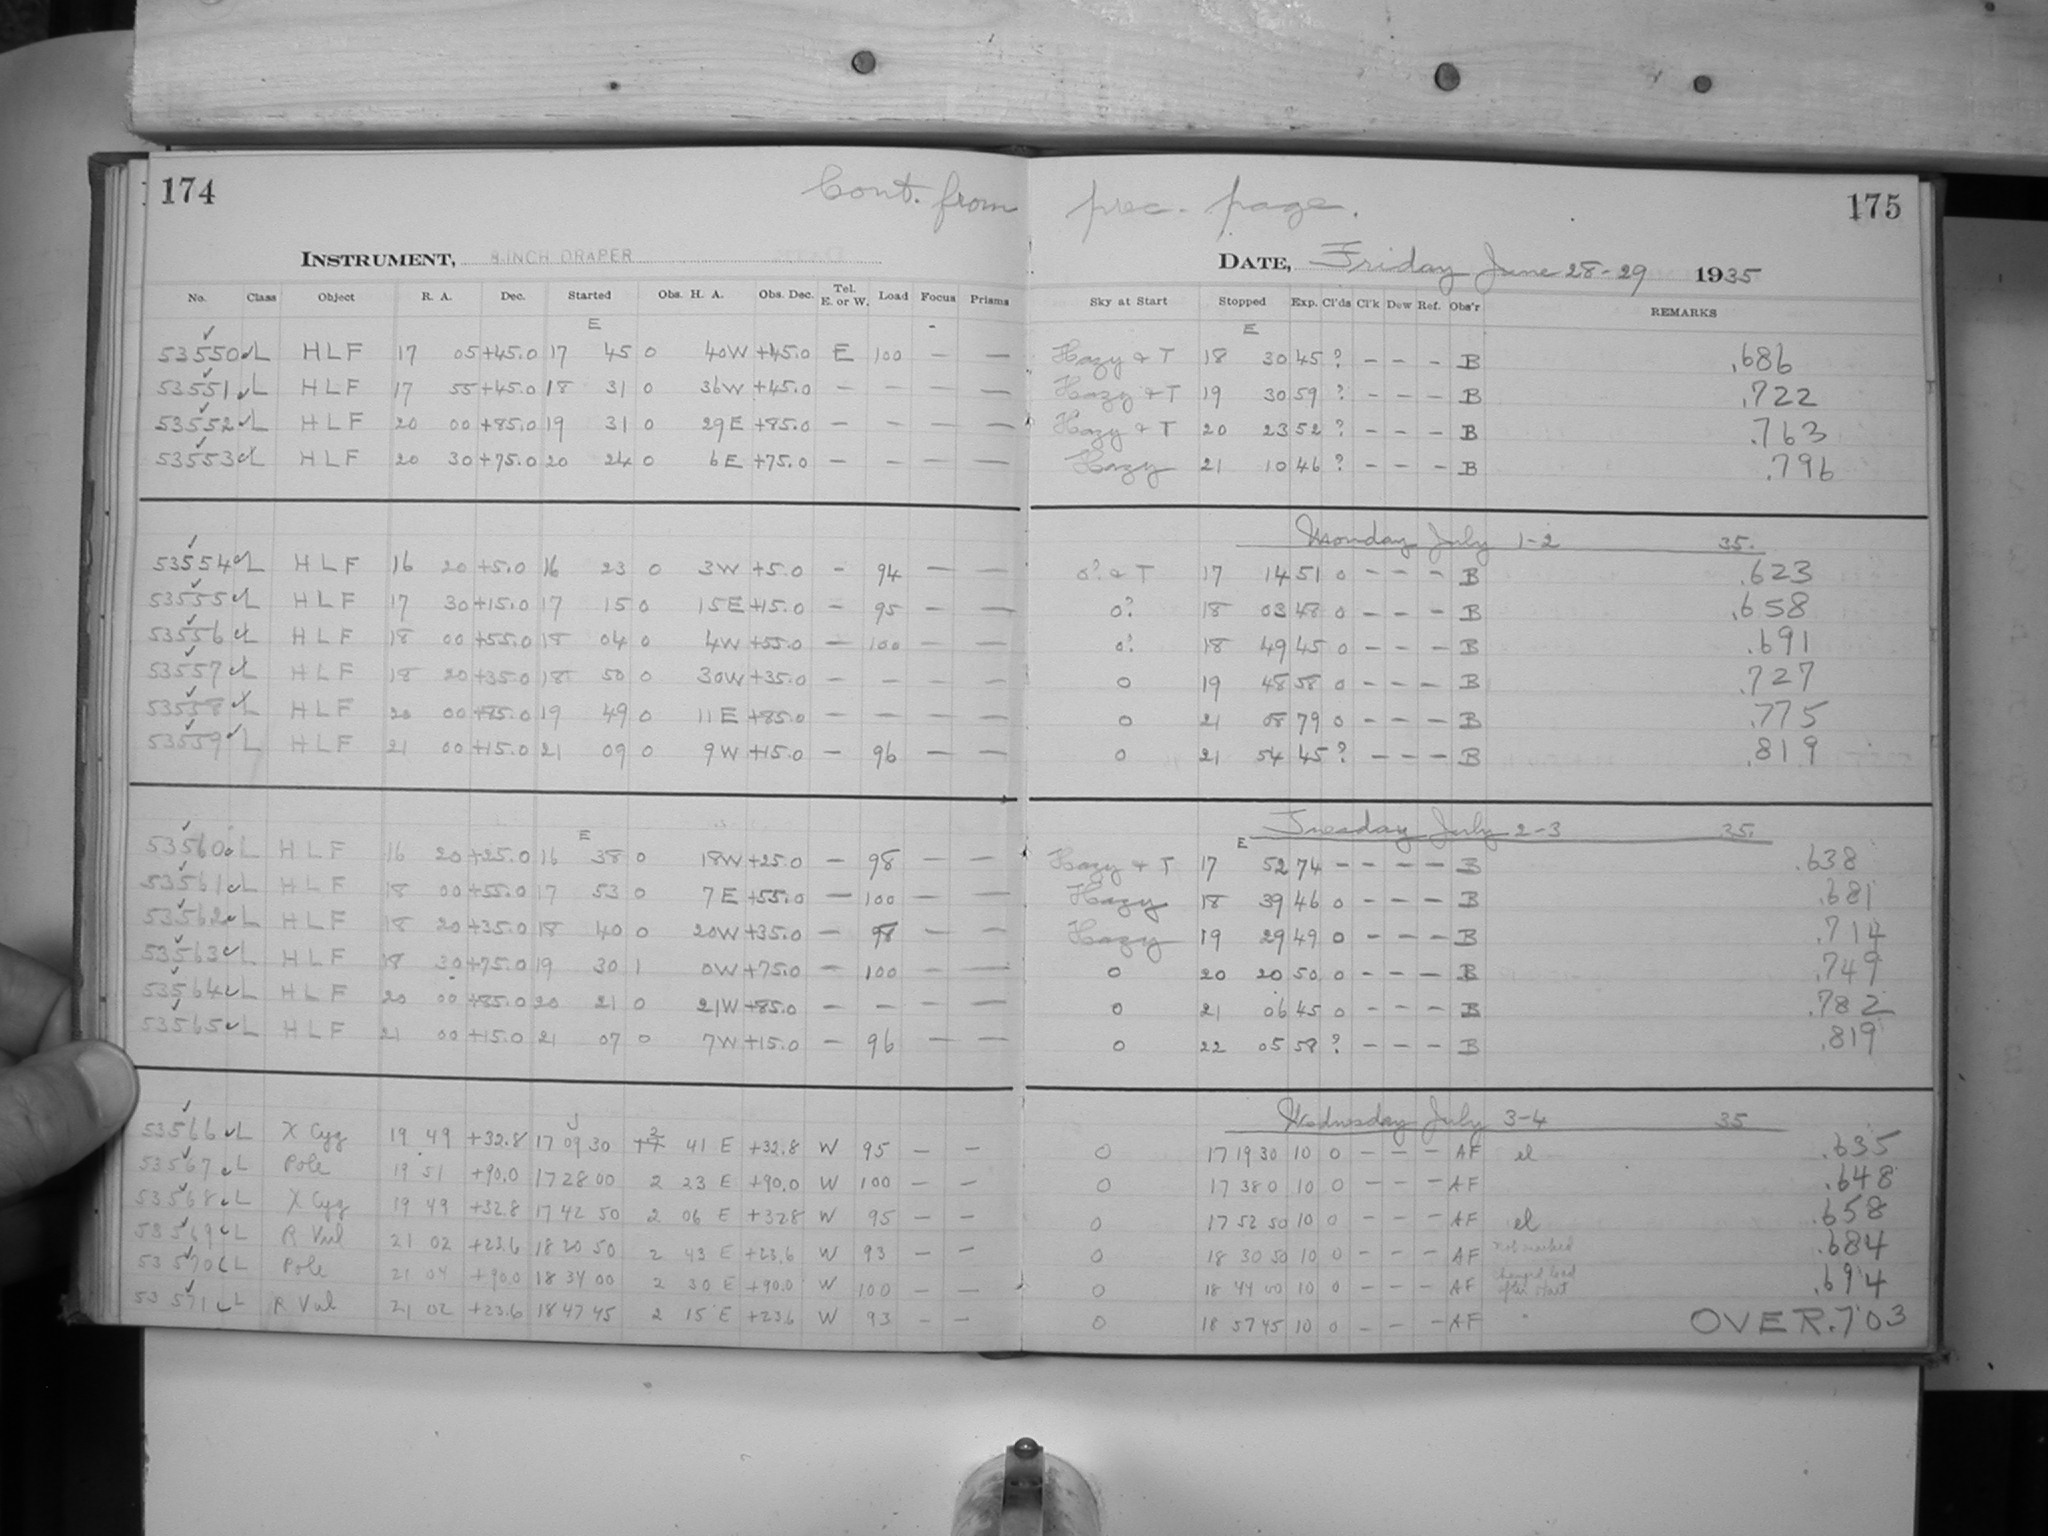 174 Cont. from prec. page. 175
INSTRUMENT, 8-INCH DRAPER DATE, Friday June 28-29 1935
No. Class Object R. A. Dec. Started Obs. H. A. Obs. Dec. Tel. E. or W. Load Focus Prisms Sky at Start Stopped Exp. Cl'ds Cl'k Dew Ref. Obs'r REMARKS
E E
53550 ✓ L H L F 17 05 +45.0 17 45 0 40W +45.0 E 100 — — Hazy & T 18 30 45 ? – – – B .686
53551 ✓ L H L F 17 55 +45.0 18 31 0 36W +45.0 – – — — Hazy & T 19 30 59 ? – – – B .722
53552 ✓ L H L F 20 00 +85.0 19 31 0 29E +85.0 – – — — Hazy & T 20 23 52 ? – – – B .763
53553 ✓ L H L F 20 30 +75.0 20 24 0 6E +75.0 – – — — Hazy 21 10 46 ? – – – B .796
Monday July 1-2 35.
53554 ✓ L H L F 16 20 +5.0 16 23 0 3W +5.0 – 94 — — 0? & T 17 14 51 0 – – – B .623
53555 ✓ L H L F 17 30 +15.0 17 15 0 15E +15.0 – 95 — — 0? 18 03 48 0 – – – B .658
53556 ✓ L H L F 18 00 +55.0 18 04 0 4W +55.0 — 100 — — 0? 18 49 45 0 – – – B .691
53557 ✓ L H L F 18 20 +35.0 18 50 0 30W +35.0 – – — — 0 19 48 58 0 – – – B .727
53558 ✓ L H L F 20 00 +85.0 19 49 0 11E +85.0 – – — — 0 21 08 79 0 – – – B .775
53559 ✓ L H L F 21 00 +15.0 21 09 0 9W +15.0 – 96 — — 0 21 54 45 ? – – – B .819
Tuesday July 2-3 35.
E E
53560 L H L F 16 20 +25.0 16 38 0 18W +25.0 – 98 — — Hazy & T 17 52 74 – – – – B .638
53561 ✓ L H L F 18 00 +55.0 17 53 0 7E +55.0 — 100 — — Hazy 18 39 46 0 – – – B .681
53562 ✓ L H L F 18 20 +35.0 18 40 0 20W +35.0 – 98 — — Hazy 19 29 49 0 – – – B .714
53563 ✓ L H L F 18 30 +75.0 19 30 1 0W +75.0 – 100 — — 0 20 20 50 0 – – – B .749
53564 ✓ L H L F 20 00 +85.0 20 21 0 21W +85.0 – – — — 0 21 06 45 0 – – – B .782
53565 ✓ L H L F 21 00 +15.0 21 07 0 7W +15.0 – 96 — — 0 22 05 58 ? – – – B .819
Wednesday July 3-4 35
J
53566 ✓ L X Cyg 19 49 +32.8 17 09 30 2 41 E +32.8 W 95 — — 0 17 19 30 10 0 – – – AF el .635
53567 ✓ L Pole 19 51 +90.0 17 28 00 2 23 E +90.0 W 100 — — 0 17 38 0 10 0 – – – AF .648
53568 ✓ L X Cyg 19 49 +32.8 17 42 50 2 06 E +32.8 W 95 — — 0 17 52 50 10 0 – – – AF el .658
53569 ✓ L R Vul 21 02 +23.6 18 20 50 2 43 E +23.6 W 93 — — 0 18 30 50 10 0 – – – AF not marked .684
53570 ✓ L Pole 21 04 +90.0 18 34 00 2 30 E +90.0 W 100 — — 0 18 44 00 10 0 – – – AF changed load after start .694
53571 ✓ L R Vul 21 02 +23.6 18 47 45 2 15 E +23.6 W 93 — — 0 18 57 45 10 0 – – – AF OVER .703